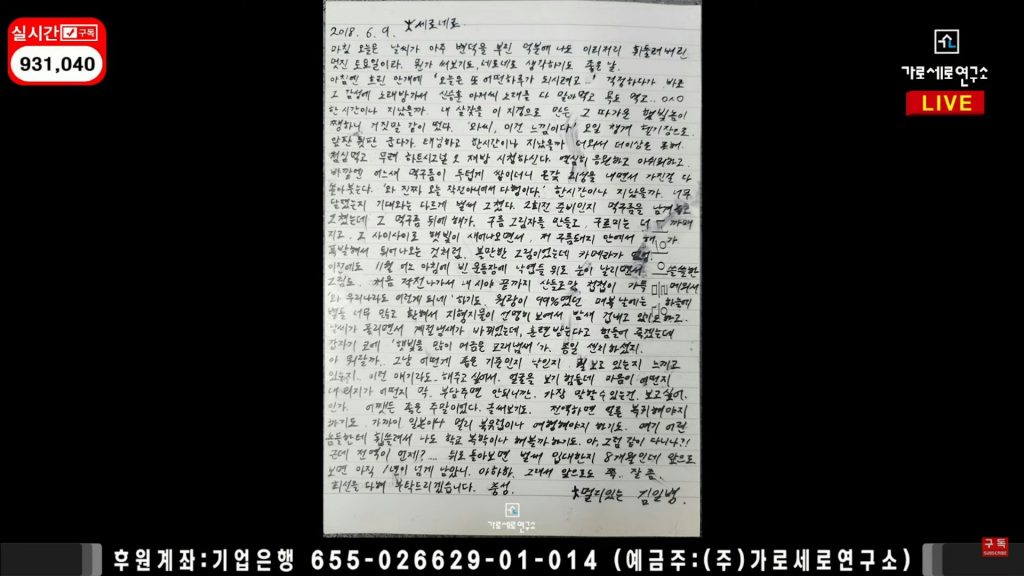 실시간 구독
931,040
가로세로연구소
LIVE
2018. 6. 9. 세로네로.
마침 오늘은 날씨가 아주 변덕을 부린 덕분에 나도 이리저리 휘둘려버린
멋진 토요일이라. 뭔가 써보기도, 네로네로 생각하기도 좋은 날.
아침엔 흐린 안개에 '오늘은 또 어떤하루가 되시려고..' 걱정하다가 바로
그 감성에 노래방가서 신승훈 아저씨 노래를 다 말아먹고 목도 먹고.. ㅇㅅㅇ
한시간이나 지났을까. 내 살갗을 이 지경으로 만든 그 따가운 햇빛놈이
쨍하니 거짓말 같이 떴다. '와씨, 이건 느낌이다' 오일 챙겨 연기장으로.
앞판 뒷판 굽다가. 태닝하고 한시간이나 지났을까 더와서 더이상은 못해.
점심먹고 무려 하트시그널 2 재방 시청하신다. 열심히 응원하고 아쉬워하고.
바깥엔 어느새 먹구름이 두텁게 쌓이더니 온갖 괴성을 내면서 가진걸 다
쏟아붓는다. '와 진짜 오늘 작전아니여서 다행이다.' 한시간이나 지났을까. 너무
달렸는지 기대와는 다르게 벌써 그쳤다. 2회전 준비인지 먹구름을 남겨놓고
그쳤는데 그 먹구름 뒤에 해가. 구름 그림자를 만들고, 구르미는 더 까매
지고. 그 사이사이로 햇빛이 새어나오면서, 저 구름돼지 안에서 해가
폭발해서 튀어나오는 것처럼. 볼만한 그림이었는데 카메라가
이전에도 11월 어느 아침에 빈 운동장에 낙엽들 위로 눈이 날리면서 쓸쓸한
그림도. 처음 작전나가서 내 시야 끝까지 산들로만 겹겹이 가득 메워서
'와 우리나라도 이런게 되네' 하기도. 월광이 99%였던 매복날에는 하늘에
별들 너무 많고 환해서 지형지물이 선명히 보여서 밤새 겁내고 있기도하고.
날씨가 풀리면서 계절냄새가 바뀌었는데, 훈련받는다고 힘들어 죽겠는데
갑자기 코에 '햇빛을 많이 머금은 모래냄새'가. 종일 센치하셨지.
아 뭐랄까.. 그냥 어떻게 좁은 기준인지 낙인지 뭘 보고 있는지 느끼고
있는지.. 이런 얘기라도. 해주고 싶어서. 얼굴을 보기 힘들데 마음이 어떤지
내 의지가 어떤지 막. 부담주면 안되니깐. 가장 말할수있는건. 보고싶어.
인가. 어쨋든 좋은 주말이었다. 글써보기도. 전역하면 얼른 복귀해야지
하기도. 가까이 일본이나 멀리 북유럽이나 여행해야지 하기도. 여기 어린
놈들한테 휩쓸려서 나도 학교 복학이나 해볼까 하기도. 아, 그럼 같이 다니나?!
근데 전역이 언제?.... 뒤로 돌아보면 벌써 입대한지 8개월인데 앞으로
보면 아직 1년이 넘게 남았네. 아하하. 그래서 앞으로도 쭉. 잘 좀.
최선을 다해 부탁드리겠습니다. 충성.
멀리있는 김일병.
가로세로연구소
후원계좌:기업은행 655-026629-01-014 (예금주:(주)가로세로연구소)
구독
SUBSCRIBE